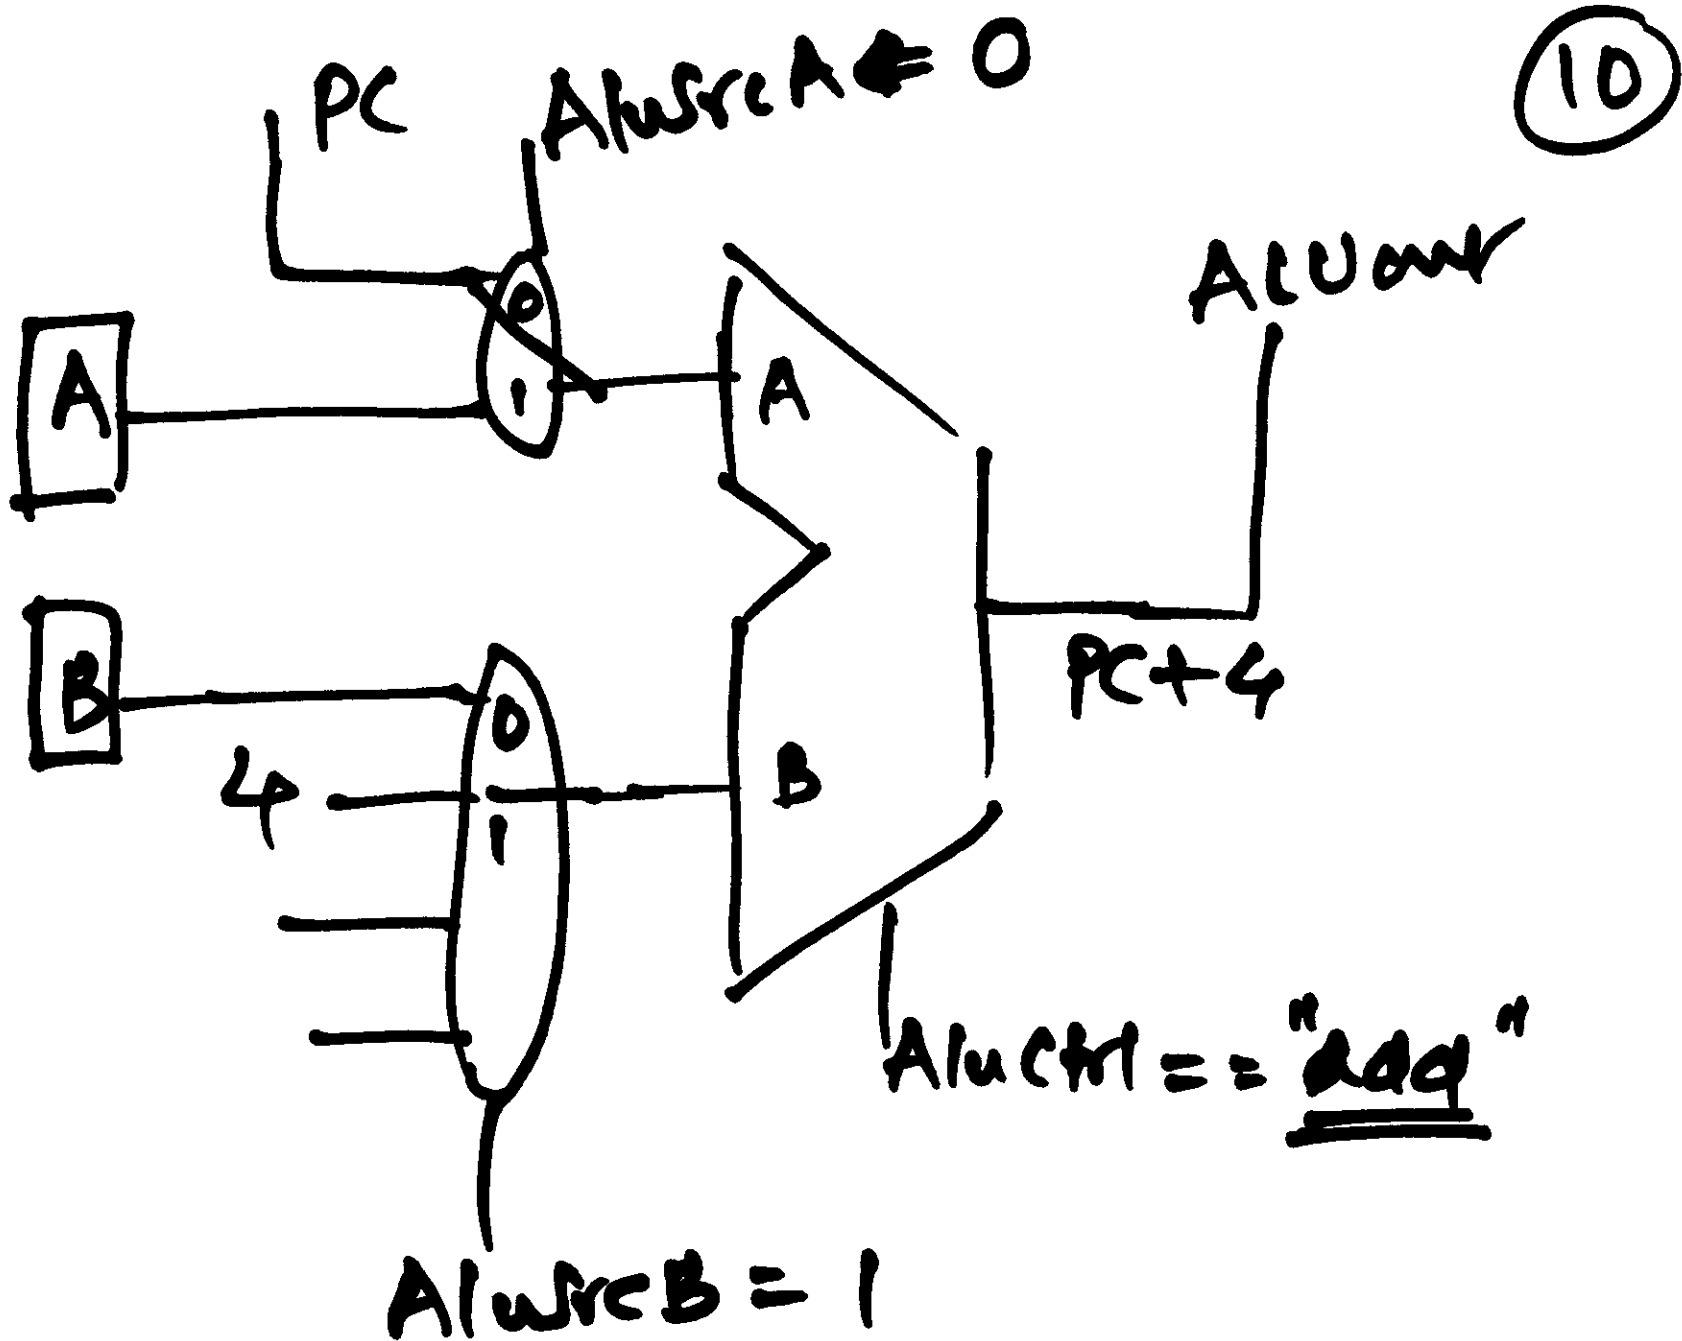 PC
AlusrcA = 0
10
ALUout
A
0
1
A
B
0
4
1
B
PC+4
AluCtrl == "add"
AlusrcB = 1